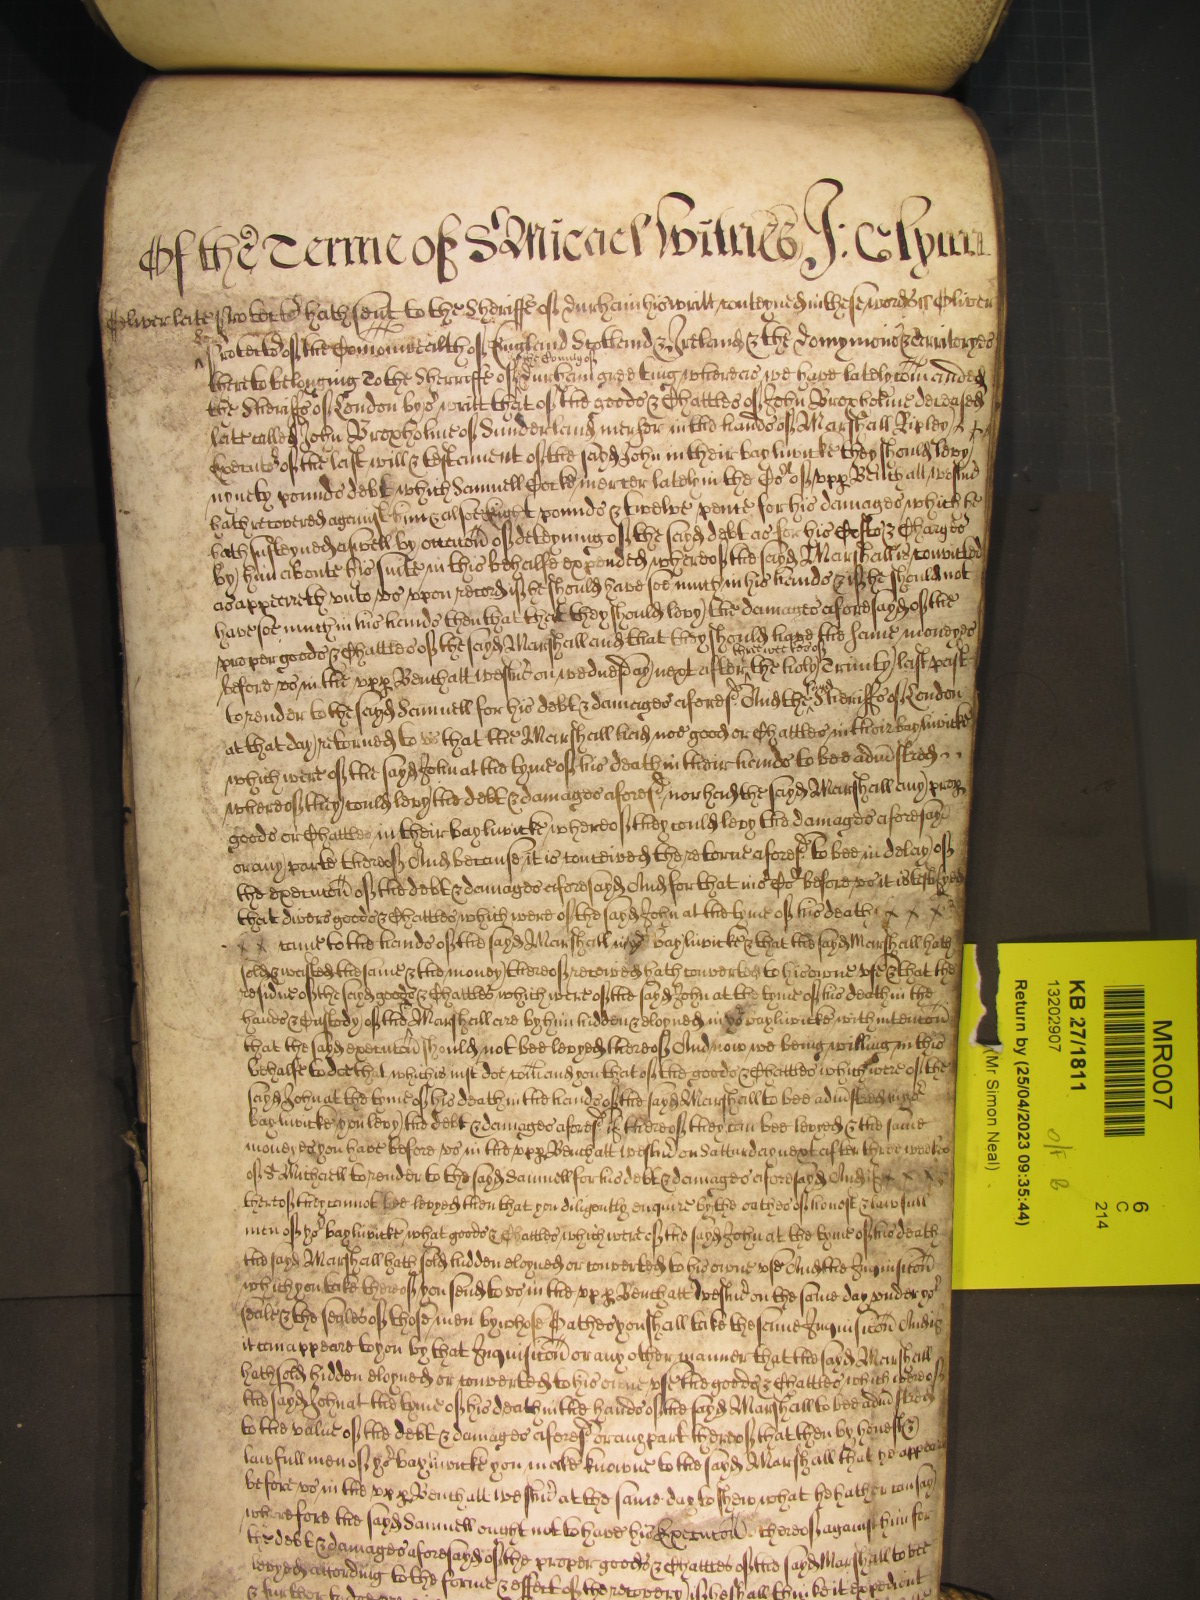 Of the Terme of St Micael Witnes J: Glynn
Oliver late Protector hath sent to the Sheriffe of Durham his writt conteyned in these words ss Oliver
Protector of the Comonwealth of England Scotland & Ireland & the Domynions & territoryes
thereto belonging To the Sherriffe of the County of Durham greeting whereas we have lately comanded
the Sheriffs of London by or writt that of the goods & Chattles of John Broxholme deceased
late called John Broxholme of Sunderland mercer in the hands of Marshall Ripley
Executor of the last will & testament of the sayd John in their bayliwicke they should levy
nynety pounds debt which Samuell Cocke mercer lately in the Cort of vpp Bench att westmr
hath recovered against him & alsoe Eight pounds & twelve pence for his damages which he
hath susteyned aswell by occacon of deteyning of the sayd debt as for his Costs & Charges
by him aboute his suite in this behalfe expended whereof the sayd Marshall is convicted
as appeareth vnto vs vpon record if he should have soe much in his hands & if he should not
have soe much in his hands then that they should levy the damages aforesayd of the
proper goods & Chattles of the sayd Marshall and that they should have the same moneyes
before vs in the vpp Bench att westmr on wednesday next after three weekes of the holy Trinity last past
to render to the sayd Samuell for his debt & damages aforesd And the Sheriffs of London
at that day retorned to vs that the Marshall had noe goods or Chattles in their bayliwicke
which were of the sayd John at the tyme of his death in their hands to bee administred
whereof they could levy the debt & damages aforesd nor had the sayd Marshall any proper
goods or Chattles in their bayliwicke whereof they could levy the damages aforesayd
or any parte thereof And because it is conceived the retorne aforesd to bee in delay of
the execucon of the debt & damages aforesayd And for that in or Cort before vs it is testifyed
that divers goods & Chattles which were of the sayd John at the tyme of his death x x x
x x came to the hands of the sayd Marshall in yor bayliwicke & that the sayd Marshall hath
sold & wasted the same & the money thereof received hath converted to his owne vse & that the
residue of the sayd goods & Chattles which were of the sayd John at the tyme of his death in the
hands & Custody of the Marshall are by him hidden & eloyned in yor bayliwicke with intencon
that the sayd execucon should not bee levyed thereof And now we being willing in this
behalfe to doe that which is iust doe comand you that of the goods & Chattles which were of the
sayd John at the tyme of his death in the hands of the sayd Marshall to bee administred in yor
bayliwicke you levy the debt & damages aforesd if thereof they can bee levyed & the same
moneyes you have before vs in the vpp Bench att westmr on Satturday next after three weekes
of St Michaell to render to the sayd Samuell for his debt & damages aforesayd And if x x x
thereof they cannot bee levyed then that you diligently enquire by the oathes of honest & lawfull
men of yor bayliwicke what goods & Chattles which were of the sayd John at the tyme of his death
the sayd Marshall hath sold hidden eloyned or converted to his owne vse And the Inquisicon
which you take thereof you send to vs in the vpp Bench att Westmr on the same day vnder yor
seale & the seales of those men by whose Oathes you shall take the same Inquisicon And if
it can appeare to you by that Inquisicon or any other manner that the sayd Marshall
hath sold hidden eloyned or converted to his owne vse the goods & Chattles which were of
the sayd John at the tyme of his death in the hands of the sayd Marshall to bee administred
to the value of the debt & damages aforesd or any part thereof that then by honest &
lawfull men of yor bayliwicke you make knowne to the sayd Marshall that he appeare
before vs in the vpp Bench att westmr at the same day to shew what he hath or can say
wherefore the sayd Samuell ought not to have his Execucon thereof against him for
the debt & damages aforesayd of the proper goods & Chattles of the sayd Marshall to bee
levyed according to the forme & effect of the recovery if he shall thinke it expedient
& further
MR007
KB 27/1811
13202907
Return by (25/04/2023 09:35:44)
(Mr Simon Neal)
6
C
214